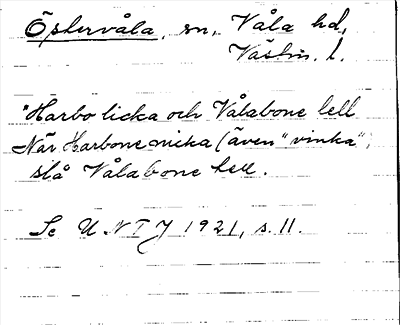 Östervåla, sn., Våla hd,
Västm. l.
"Harbo licka och Vålabone lell
När Harbone nicka (även "vinka",
slå Vålabone hell.
Se UNTJ 1921, s. 11.